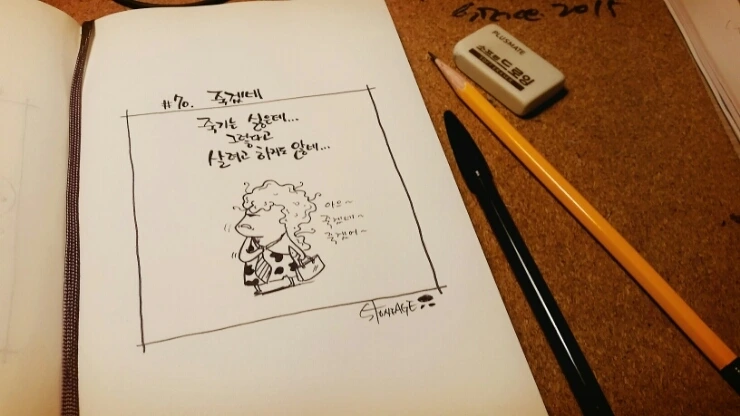 #70. 죽겠네
죽기는 싫은데...
그렇다고
살려고 하지도 않네...
아으~
죽겠네~
죽겠어~
PLUSMATE
소프트드로잉